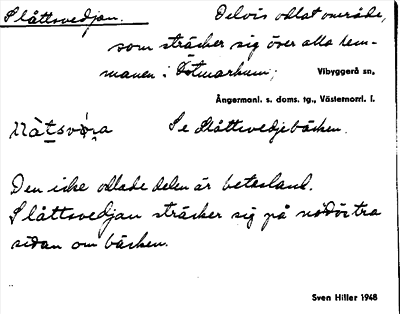 Slåttsvedjan. Delvis odlat område,
som sträcker sig över alla hem-
manen i Östmarkum; Vibyggerå sn,
Ångermanl. s. doms. tg., Västernorrl. l.
Se Slåttsvedjebäcken.
Den icke odlade delen är betesland.
Slåttsvedjan sträcker sig på nordöstra
sidan om bäcken.
Sven Hiller 1948